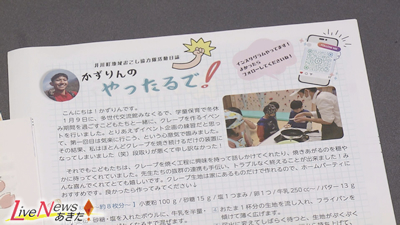 井川町地域おこし協力隊活動日誌
かずりんの
やったるで!
インスタグラムやってます!
よかったら
フォローしてくださいね!
こんにちは！かずりんです。
1月9日に、多世代交流館みなくるで、学童保育で冬休
み期間を過ごす子どもたちと一緒に、クレープを作るイベン
トを行いました。とりあえずイベント企画の練習だと思っ
て、第一回目は気楽に行こう、というの意気で臨みました。
その結果、私はほとんどクレープを焼き続けるだけの装置に
なってしまいました（笑）段取りが悪くて申し訳なかった！
それでもこどもたちは、クレープを焼く工程に興味を持って話しかけてくれたり、焼きあがるのを穏や
かに待ってくれていました。先生たちの抜群の連携も手伝い、トラブルなく終えることが出来ました！み
んな喜んでくれてとても嬉しかったです。クレープ生地は家にあるものだけで作れるので、ホームパーティに
おすすめです。良かったら作ってみてください♪
小麦粉 100g / 砂糖 15g / 塩 1つまみ / 卵 1つ / 牛乳 250cc / バター 13g
Live News
あきた!